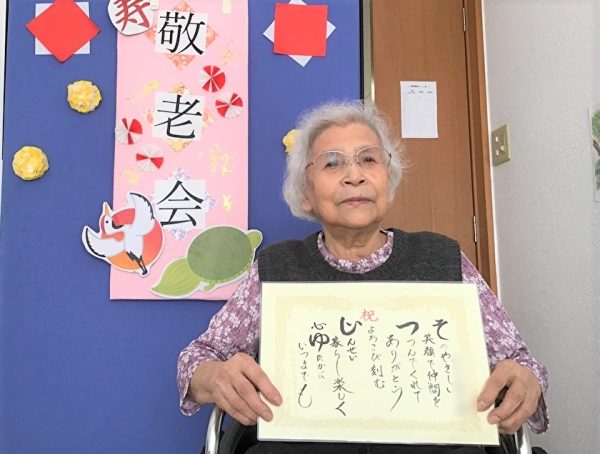 寿
敬老会
祝
そのやさしい
笑顔で仲間を
つつんでくれて
ありがとう
よろこび刻む
じんせい
暮らし楽しく
心ゆたかに
いつまでも